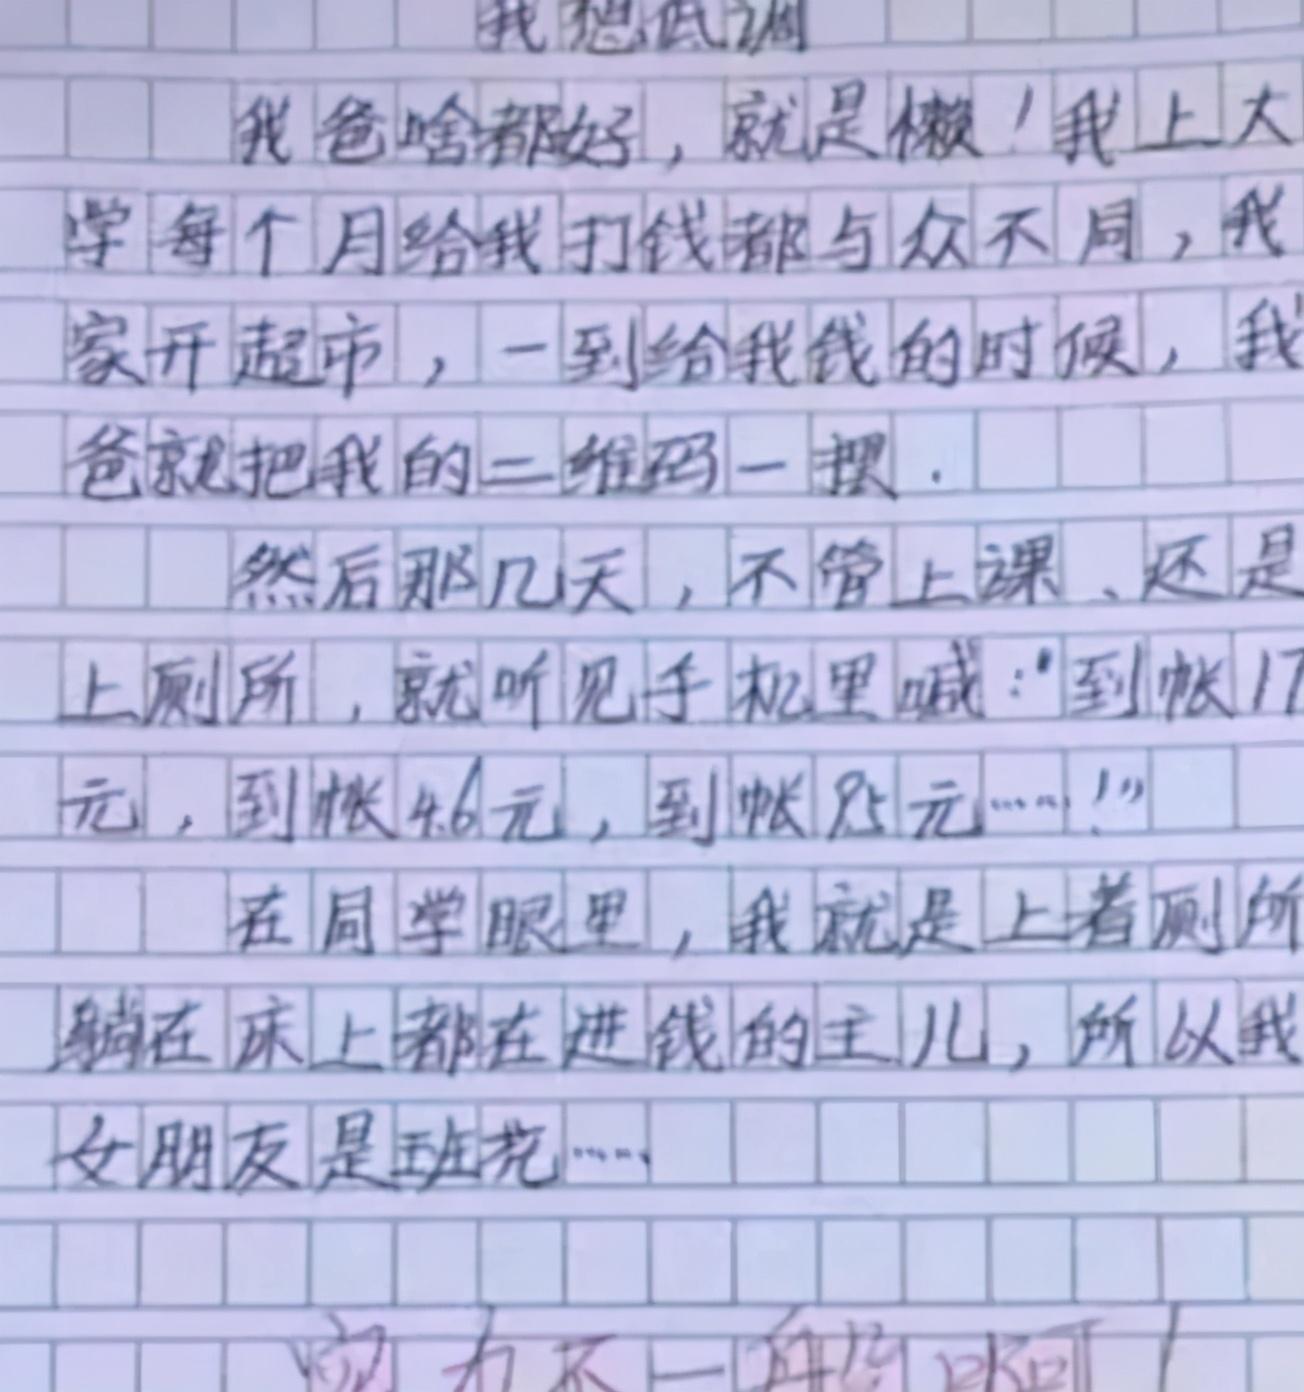 我想低调
我爸啥都好，就是懒！我上大
学每个月给我打钱都与众不同，我
家开超市，一到给我钱的时候，我
爸就把我的二维码一摆.
然后那几天，不管上课、还是
上厕所，就听见手机里喊："到帐17
元，到帐4.6元，到帐95元……！"
在同学眼里，我就是上着厕所
躺在床上都在进钱的主儿，所以我
女朋友是班花……
实力不一般啊！